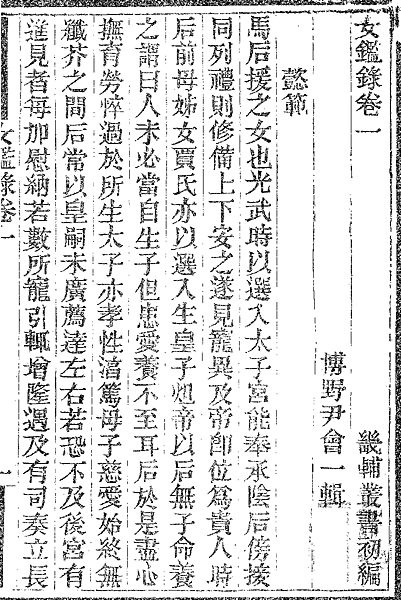 女鑑錄卷一
畿輔叢書初編
博野尹會一輯
懿範
馬后援之女也光武時以選入太子宮能奉承陰后傍接
同列禮則修備上下安之遂見寵異及帝卽位爲貴人時
后前母姊女賈氏亦以選入生皇子炟帝以后無子命養
之謂曰人未必當自生子但患愛養不至耳后於是盡心
撫育勞悴過於所生太子亦孝性湻篤母子慈愛始終無
纖芥之間后常以皇嗣未廣薦達左右若恐不及後宮有
進見者每加慰納若數所寵引輒增隆遇及有司奏立長
女鑑錄卷一
一